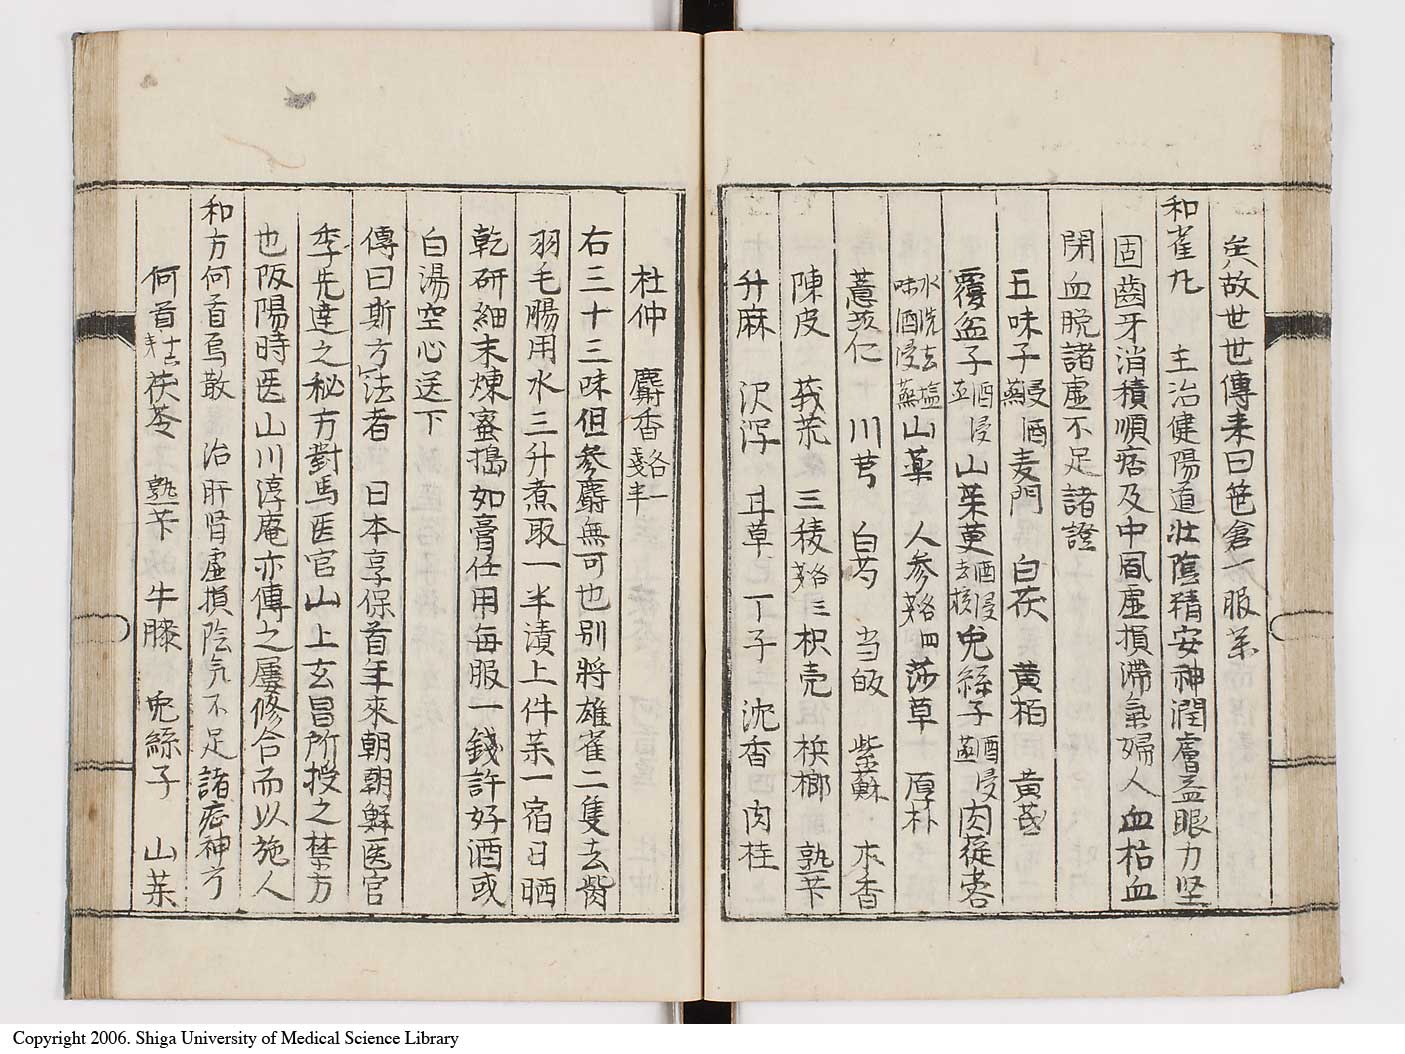 矣故世世傳来曰笹倉一服茶
和雀丸 主治健陽道壮陰精安神潤膚益眼力坚
固齒牙消積順痞及中風虚損滞氣婦人血枯血
閉血脱諸虚不足諸證
五味子浸酒蒸麦門 白茯 黄栢 黄芪
覆盆子酒浸蒸山茱萸酒浸去核兎絲子酒浸蒸肉蓯蓉
水洗去塩味酒浸蒸山薬 人参各四莎草 厚朴
薏苡仁 川芎 白芍 当皈 紫蘇 木香
陳皮 莪荒 三稜各三枳壳 梹榔 熟芐
升麻 沢泻 甘草 丁子 沈香 肉桂
杜仲 麝香各一戔半
右三十三味但參麝無可也別將雄雀二隻去觜
羽毛腸用水三升煮取一半漬上件茶一宿日晒
乾研細末煉蜜搗如膏任用每服一錢許好酒或
白湯空心送下
傳曰斯方法者 日本享保首年來朝朝鮮医官
季先達之秘方對馬医官山上玄冒所授之禁方
也阪陽時医山川淳庵亦傳之屢修合而以施人
和方何首烏散 治肝肾虚損陰気不足諸症神方
何首 茯苓 熟芐 牛膝 兎絲子 山茱
Copyright 2006. Shiga University of Medical Science Library